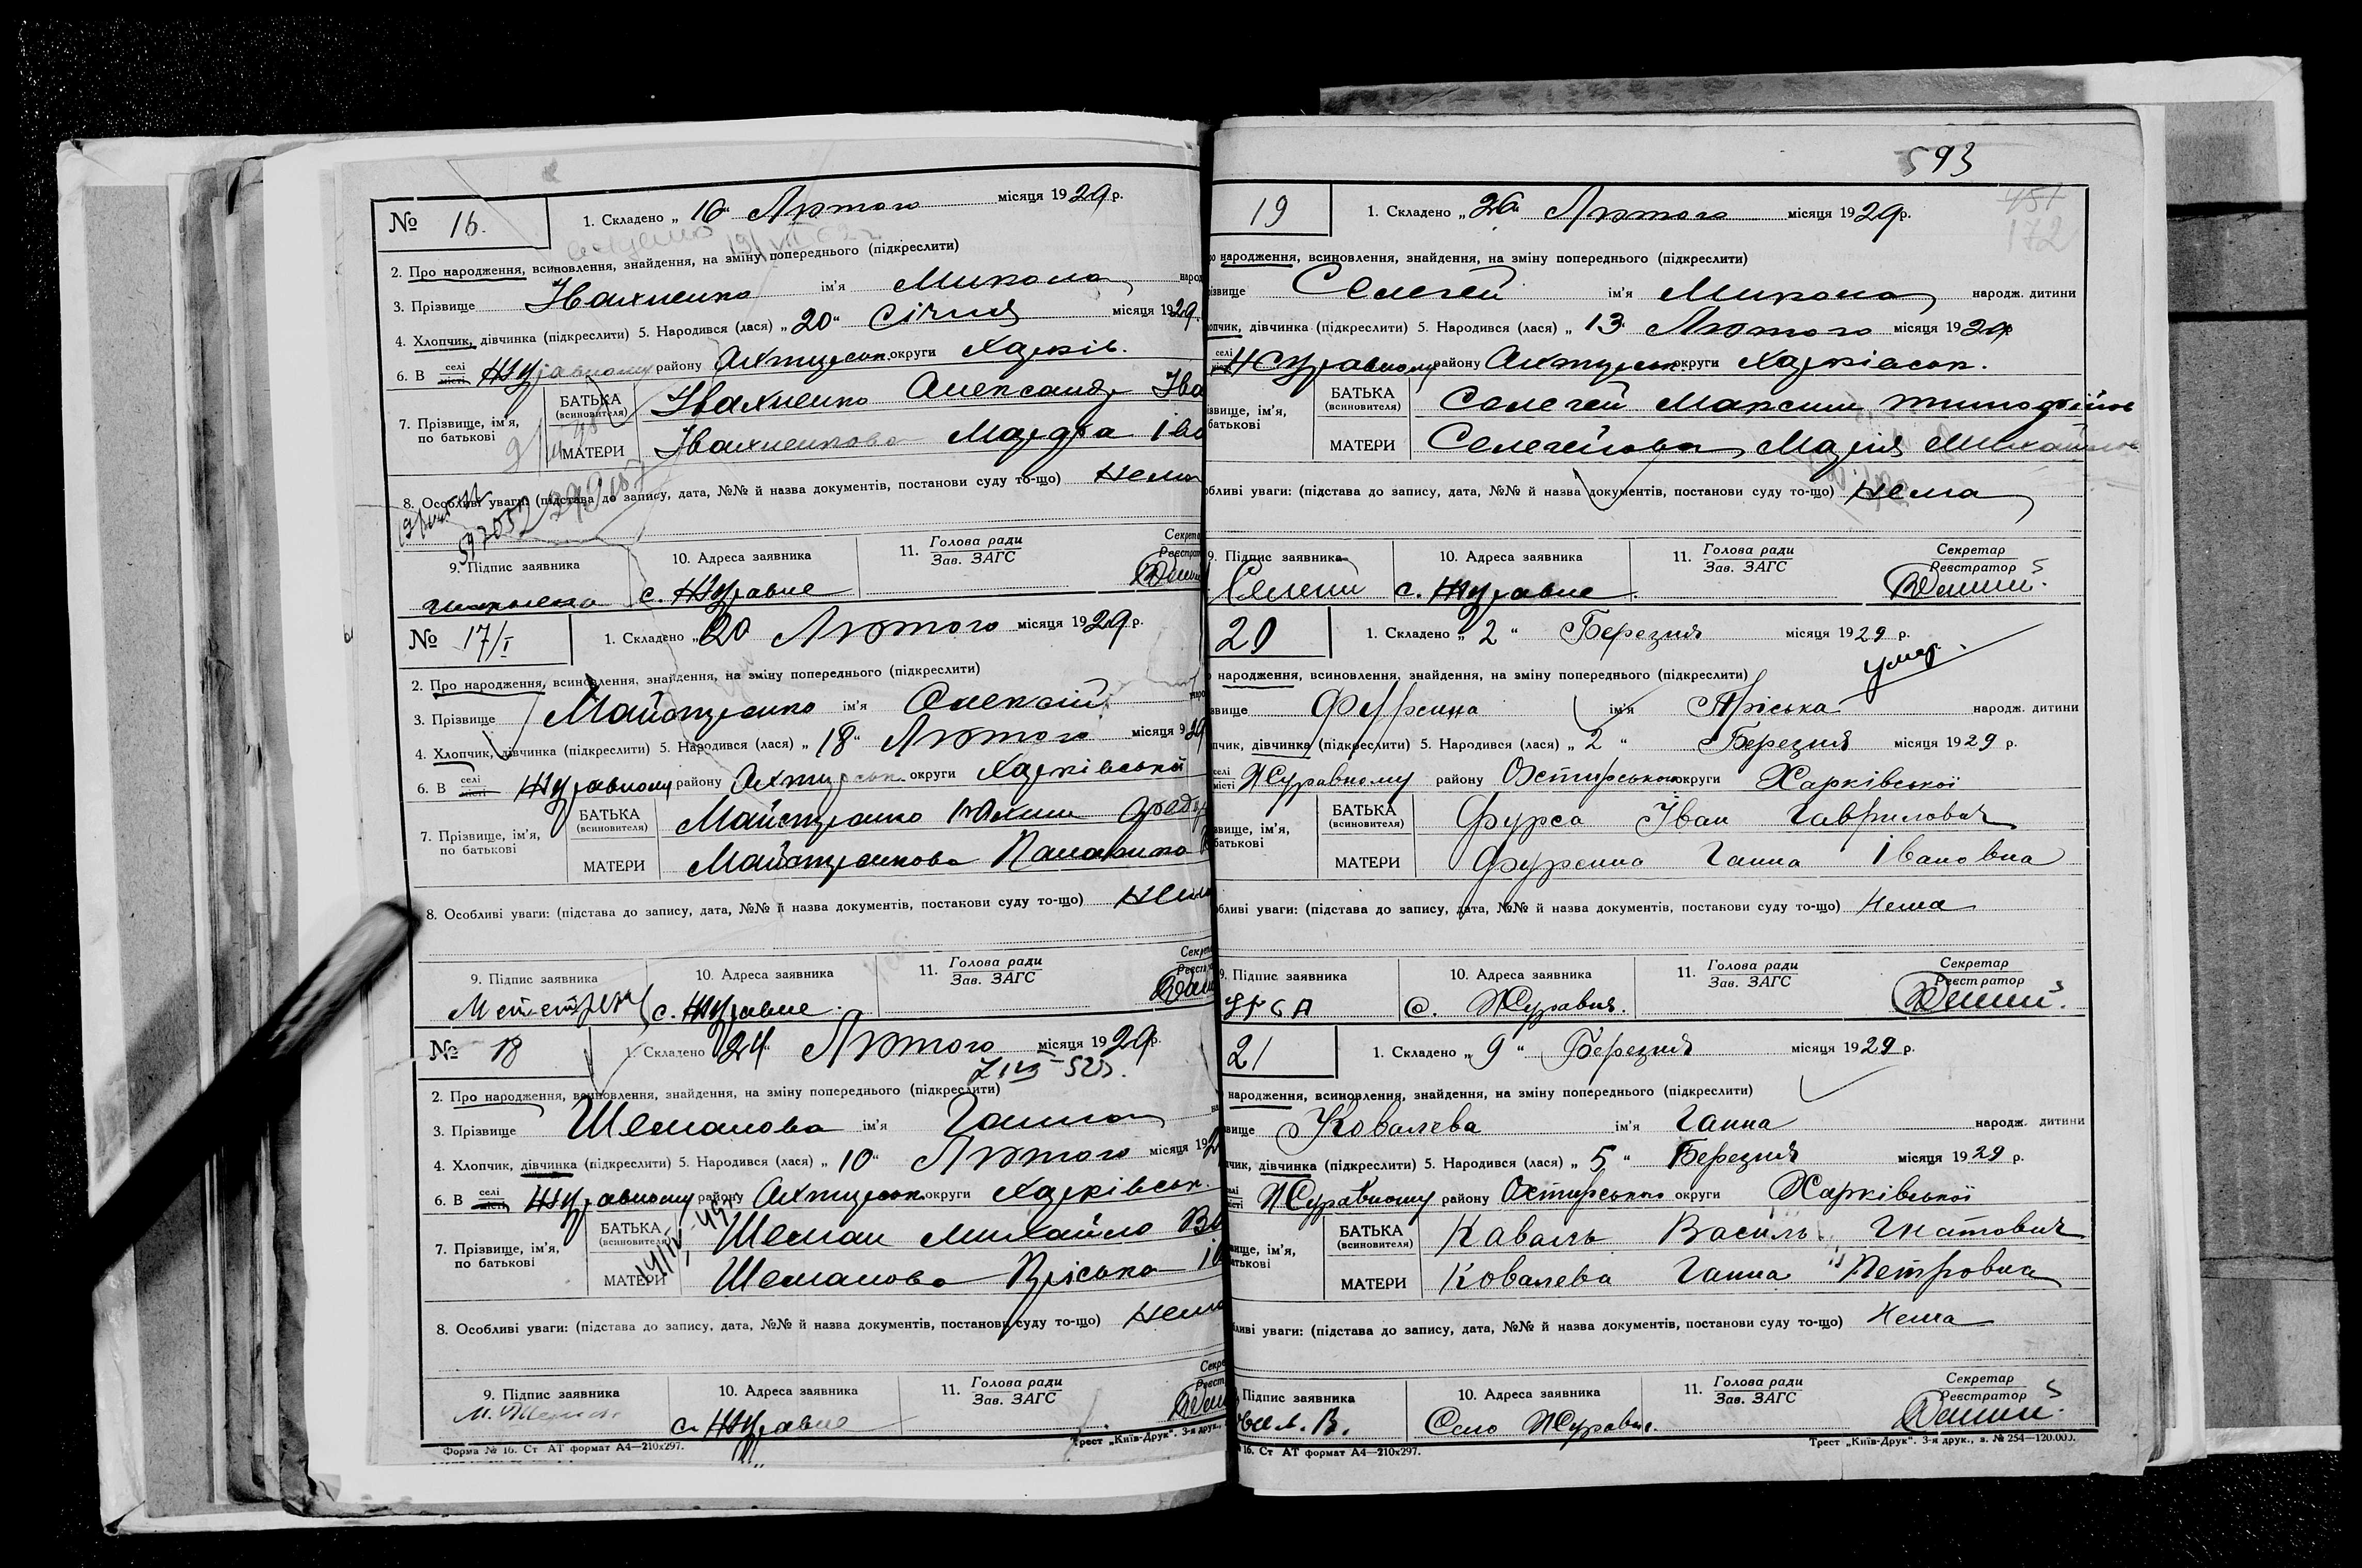 № 16. 1. Складено „ 16 “ Лютого місяця 1929 р.
2. Про народження, всиновлення, знайдення, на зміну попереднього (підкреслити)
3. Прізвище Івахненко ім'я Микола народ
4. Хлопчик, дівчинка (підкреслити) 5. Народився (лася) „ 20 “ Січня місяця 1929.
6. В селі місті Журавному району Охтирськ. округи Харків.
7. Прізвище, ім'я, по батькові
БАТЬКА (всиновителя) Івахненко Олександр Іва
МАТЕРИ Івахненкова Марфа Іва
8. Особливі уваги: (підстава до запису, дата, №№ й назва документів, постанови суду то-що) Нема
9. Підпис заявника 10. Адреса заявника 11. Голова ради Зав. ЗАГС Секрета Реєстрат
с. Журавне
№ 17/I 1. Складено „ 20 Лютого місяця 1929 р.
2. Про народження, всиновлення, знайдення, на зміну попереднього (підкреслити)
3. Прізвище Майстренко ім'я Олексій
4. Хлопчик, дівчинка (підкреслити) 5. Народився (лася) „ 18 “ Лютого місяця 929
6. В селі місті Журавному району Охтирськ. округи Харківської
7. Прізвище, ім'я, по батькові
БАТЬКА (всиновителя) Майстренко Юхим Федо
МАТЕРИ Майстренкова Палажка
8. Особливі уваги: (підстава до запису, дата, №№ й назва документів, постанови суду то-що) Нема
9. Підпис заявника 10. Адреса заявника 11. Голова ради Зав. ЗАГС Секрет Реєстр
с. Журавне.
№ 18 1. Складено „ 24 “ Лютого місяця 1929 р.
2. Про народження, всиновлення, знайдення, на зміну попереднього (підкреслити)
3. Прізвище Шеманова ім'я Ганна
4. Хлопчик, дівчинка (підкреслити) 5. Народився (лася) „ 10 “ Лютого місяця 192
6. В селі місті Журавному району Охтирськ. округи Харківськ.
7. Прізвище, ім'я, по батькові
БАТЬКА (всиновителя) Шеман Михайло Ва
МАТЕРИ Шеманова Пріська Ів
8. Особливі уваги: (підстава до запису, дата, №№ й назва документів, постанови суду то-що) Нема
9. Підпис заявника 10. Адреса заявника 11. Голова ради Зав. ЗАГС Секре Реєст
с. Журавне
Форма № 16. Ст АТ формат А4—210х297. Трест „Київ-Друк“. 3-я друк.,
593
451
172
19 1. Складено „ 26 “ Лютого місяця 1929 р.
народження, всиновлення, знайдення, на зміну попереднього (підкреслити)
ізвище Селегей ім'я Микола народж. дитини
опчик, дівчинка (підкреслити) 5. Народився (лася) „ 13 “ Лютого місяця 1929
селі Журавному району Охтирськ. округи Харківськ.
ізвище, ім'я, батькові
БАТЬКА (всиновителя) Селегей Максим Тимофійов
МАТЕРИ Селегейова Марія Михайлов
бливі уваги: (підстава до запису, дата, №№ й назва документів, постанови суду то-що) Нема
9. Підпис заявника 10. Адреса заявника 11. Голова ради Зав. ЗАГС Секретар Реєстратор
с. Журавне
20 1. Складено „ 2 “ Березня місяця 1929 р.
умер.
народження, всиновлення, знайдення, на зміну попереднього (підкреслити)
звище Фурсина ім'я Пріська народж. дитини
пчик, дівчинка (підкреслити) 5. Народився (лася) „ 2 “ Березня місяця 1929 р.
селі місті Журавному району Охтирського округи Харківської
звище, ім'я, батькові
БАТЬКА (всиновителя) Фурса Іван Гаврилович
МАТЕРИ Фурсина Ганна Івановна
бливі уваги: (підстава до запису, дата, №№ й назва документів, постанови суду то-що) Нема
9. Підпис заявника 10. Адреса заявника 11. Голова ради Зав. ЗАГС Секретар Реєстратор
с. Журавня.
21 1. Складено „ 9 “ Березня місяця 1929 р.
народження, всиновлення, знайдення, на зміну попереднього (підкреслити)
вище Ковалева ім'я Ганна народж. дитини
чик, дівчинка (підкреслити) 5. Народився (лася) „ 5 “ Березня місяця 1929 р.
місті Журавному району Охтирського округи Харківської
вище, ім'я, атькові
БАТЬКА (всиновителя) Коваль Василь Гнатович
МАТЕРИ Ковалева Ганна Петровна
ливі уваги: (підстава до запису, дата, №№ й назва документів, постанови суду то-що) Нема
Підпис заявника 10. Адреса заявника 11. Голова ради Зав. ЗАГС Секретар Реєстратор
овал. В. Село Журавне.
16. Ст АТ формат А4—210х297. Трест „Київ-Друк“. 3-я друк., з. № 254—120.000.